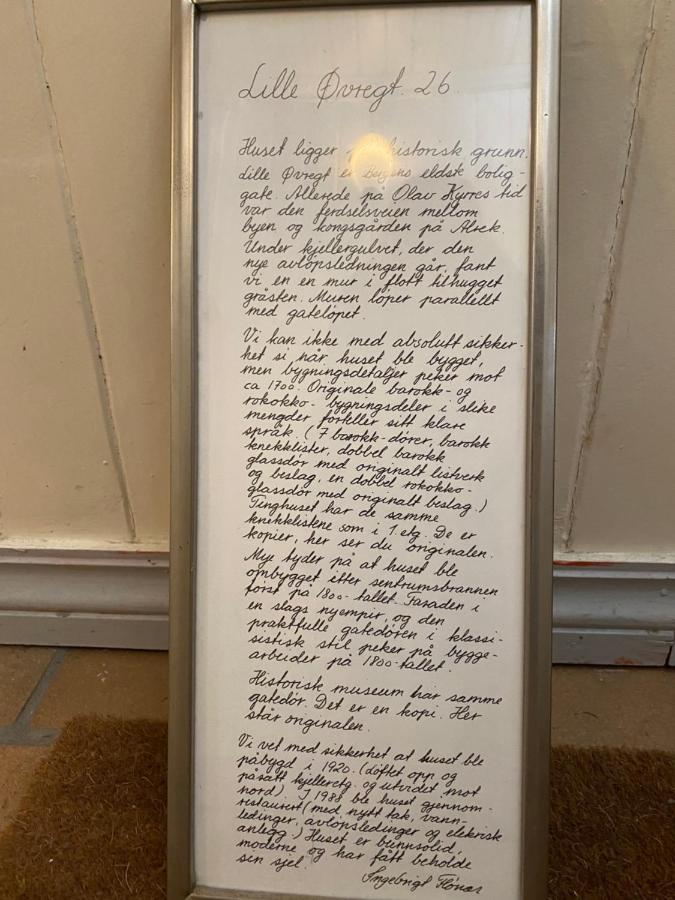 Lille Øvregt. 26
Huset ligger på historisk grunn.
Lille Øvregt er Bergens eldste bolig-
gate. Allerede på Olav Kyrres tid
var den ferdselsveien mellom
byen og kongsgården på Alrek.
Under kjellergulvet, der den
nye avløpsledningen går, fant
vi en en mur i flott tilhugget
gråsten. Muren løper parallellt
med gateløpet.
Vi kan ikke med absolutt sikker-
het si når huset ble bygget,
men bygningsdetaljer peker mot
ca 1700. Originale barokk- og
rokokko- bygningsdeler i slike
mengder forteller sitt klare
språk. (7 barokk-dører, barokk
knekklister, dobbel barokk
glassdør med originalt listverk
og beslag, en dobbel rokokko-
glassdør med originalt beslag.)
Tinghuset har de samme
knekklistene som i 1. etg. De er
kopier, her ser du originalen.
Mye tyder på at huset ble
ombygget etter sentrumsbrannen
først på 1800-tallet. Fasaden i
en slags nyempir, og den
praktfulle gatedøren i klassi-
sistisk stil peker på bygge-
arbeider på 1800-tallet.
Historisk museum har samme
gatedør. Det er en kopi. Her
står originalen.
Vi vet med sikkerhet at huset ble
påbygd i 1920. (Løftet opp og
påsatt kjelleretg. og utvidet mot
nord). I 1988 ble huset gjennom-
restaurert (med nytt tak, vann-
ledinger, avløpsledinger og elekrisk
anlegg.) Huset er bunnsolid,
moderne og har fått beholde
sin sjel.
Ingebrigt